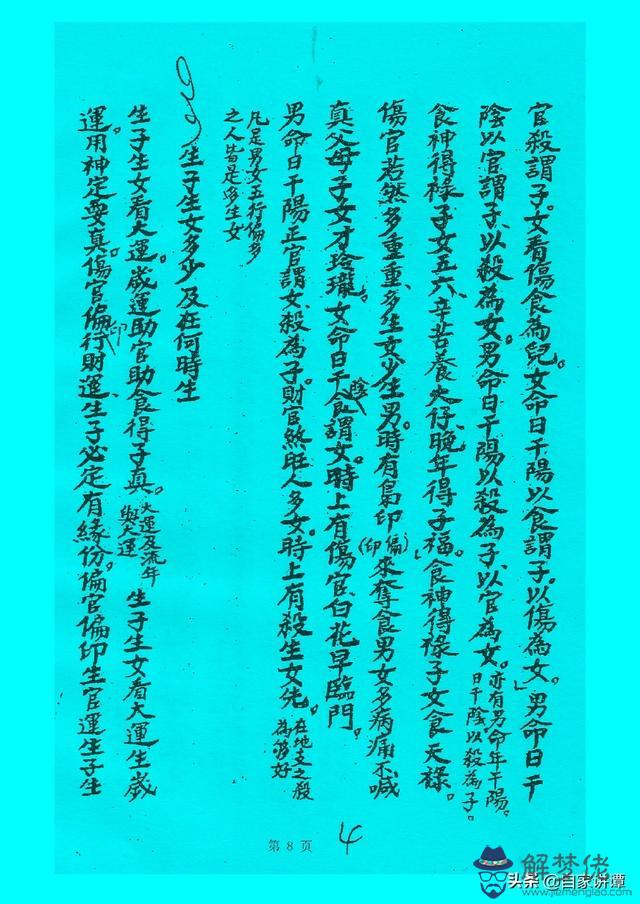 官殺謂子。女看傷食為兒。女命日干陽以食謂子。以傷為女。」男命日干
陰以官謂子、以殺為女。男命日干陽以殺為子、以官為女。亦有男命年干陽。日干陰以殺為子。
食神得祿子女五六、辛苦養大仔、晚年得子福。「食神得祿子女食天祿。
傷官若然多重重、多生女少生男。時有梟印(偏印)來奪食男女多病痛不喊
真父母子女才玲瓏。女命日干陰食謂女。時上有傷官、白花早臨門。
男命日干陽正官謂女、殺為子財官煞旺人多女。時上有殺生女先。在地支之殺為够好
凡是男女五行偏多
之人皆是多生女
9、生子生女多少及在何時生
生子生女看大運。歲運助官助食得子真。大運及流年與大運 生子生女看大運生歲
運。用神定要真。傷官偏印行財運、生子必定有緣份。偏官偏印生官運生子生
第 8 页
4
解梦佬
www.jiemenglao.com
头条 @自家讲谭